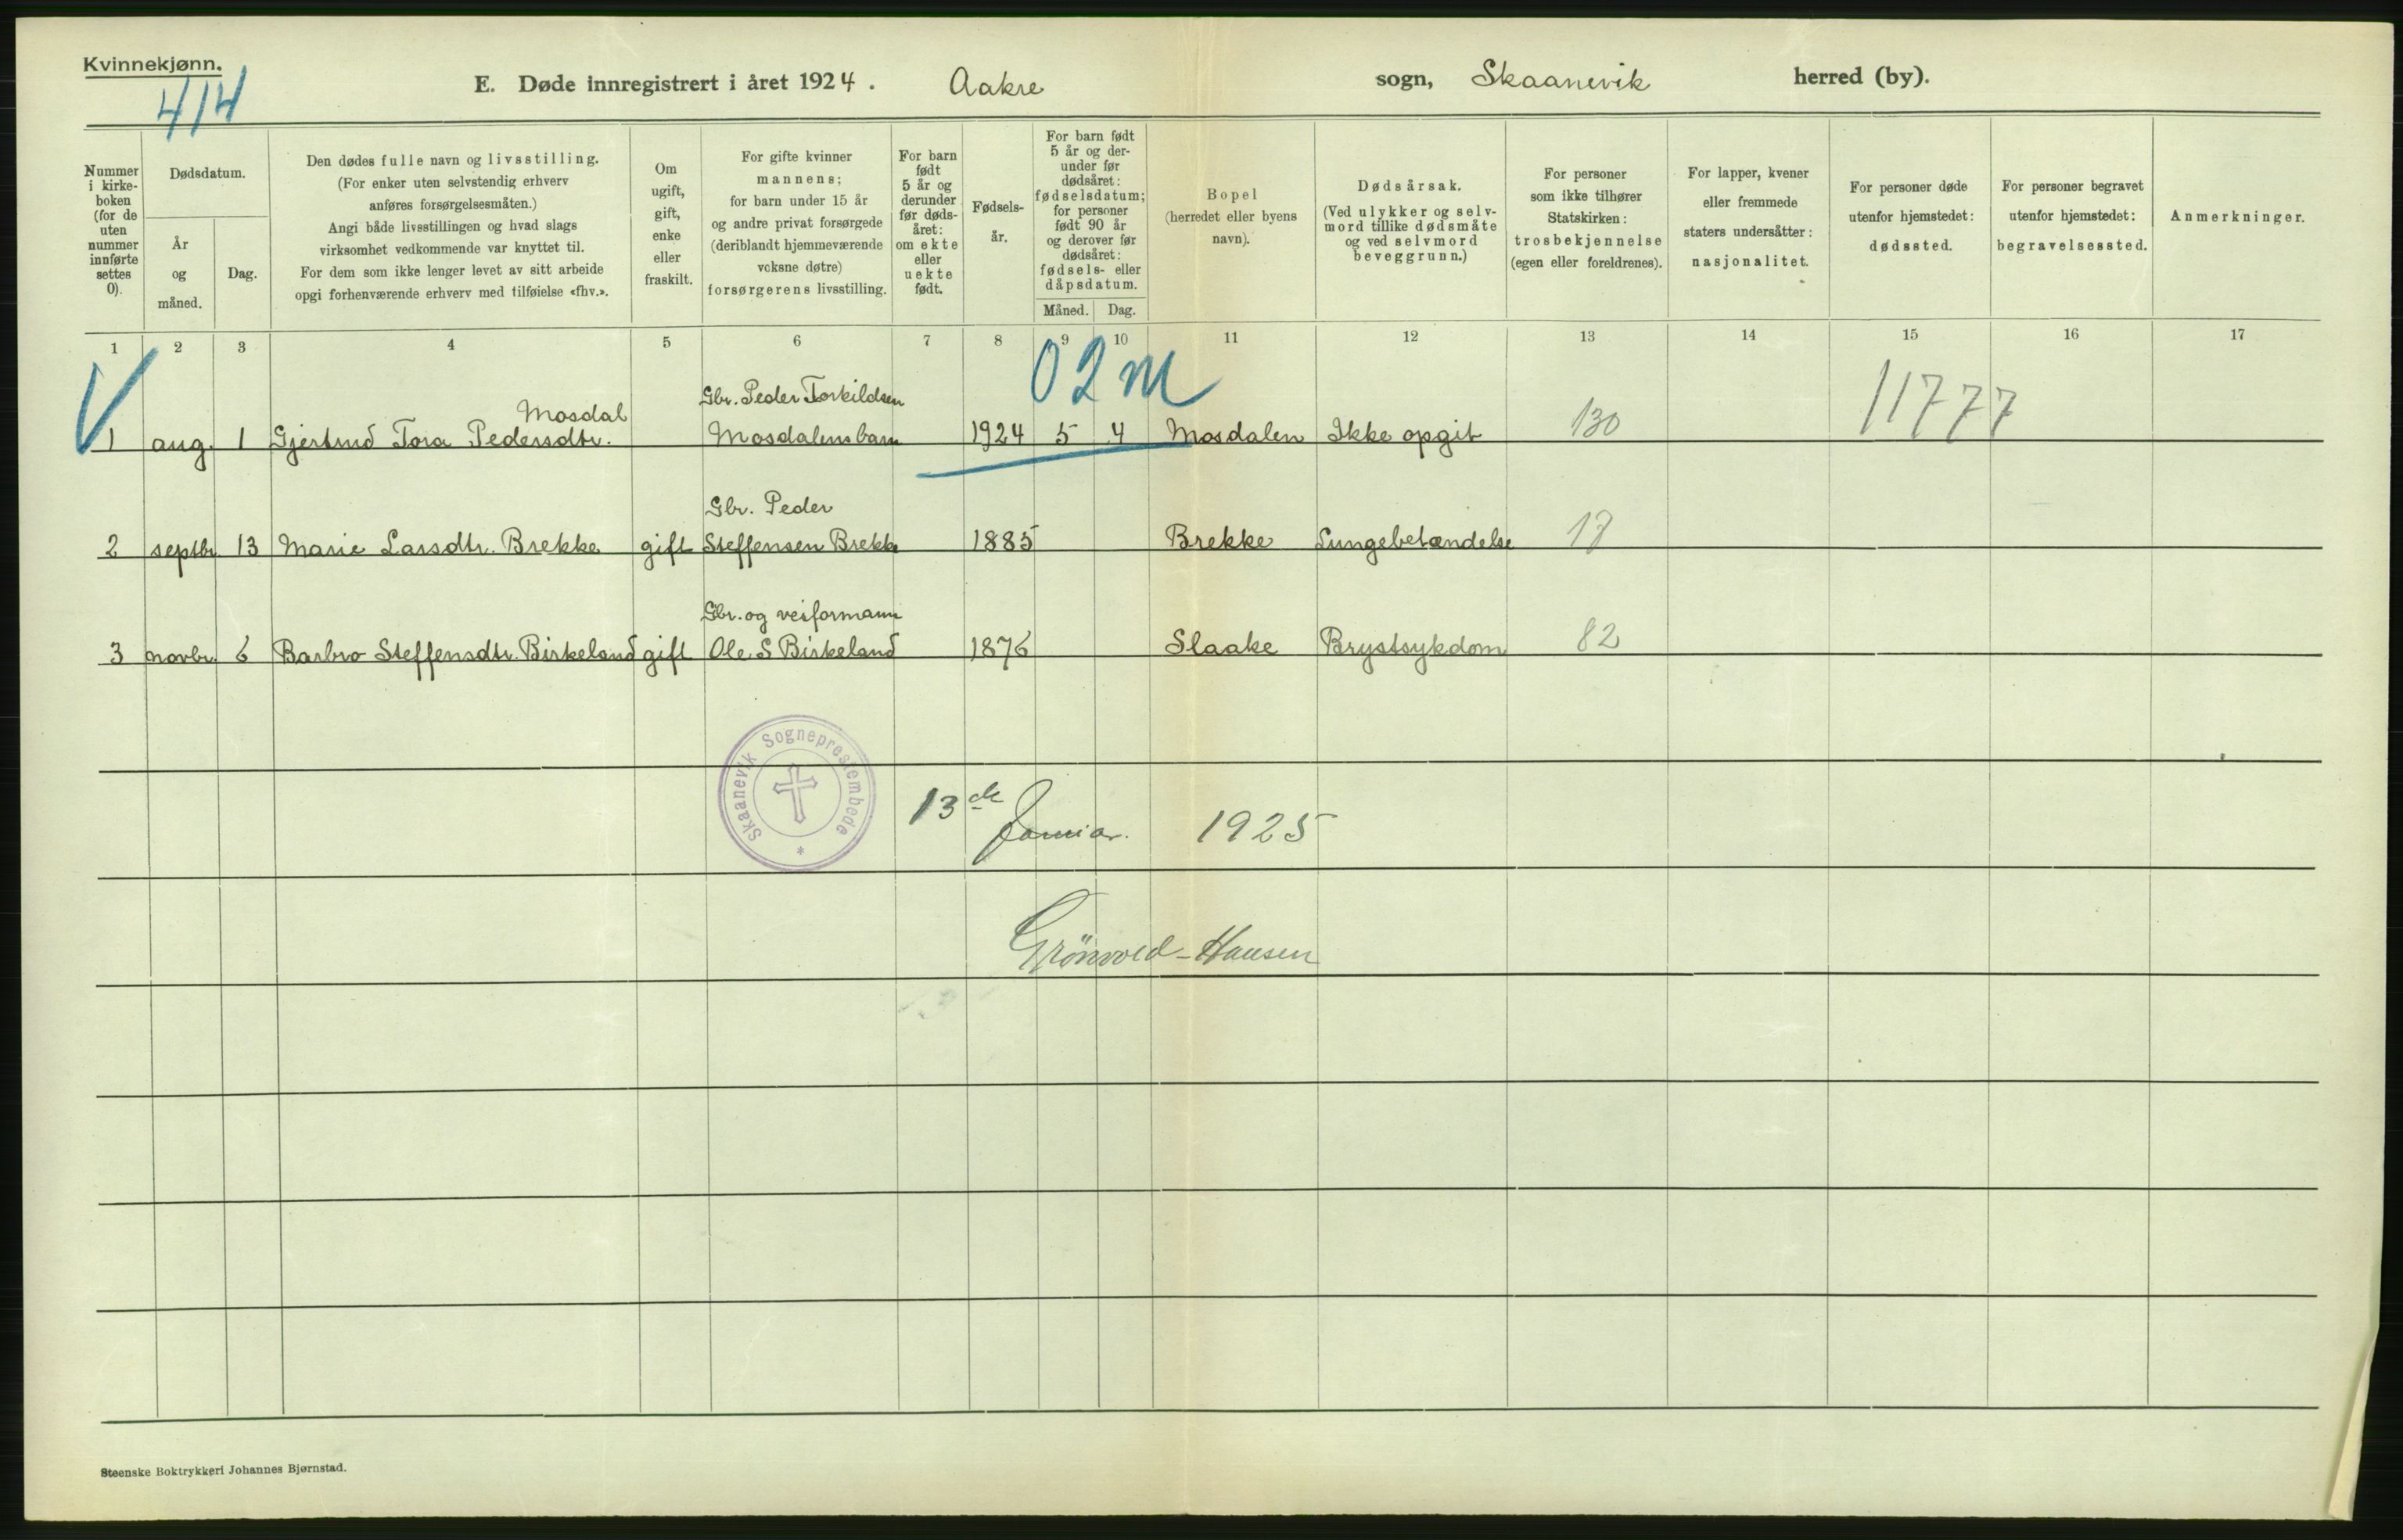 Kvinnekjønn.
414
E. Døde innregistrert i året 1924. Aakre sogn, Skaanevik herred (by).
Nummer i kirke- boken (for de uten nummer innførte settes 0).
Dødsdatum.
År og måned.
Dag.
Den dødes fulle navn og livsstilling.
(For enker uten selvstendig erhverv
anføres forsørgelsesmåten.)
Angi både livsstillingen og hvad slags
virksomhet vedkommende var knyttet til.
For dem som ikke lenger levet av sitt arbeide
opgi forhenværende erhverv med tilføielse «fhv.».
Om
ugift,
gift,
enke
eller
fraskilt.
For gifte kvinner
mannens;
for barn under 15 år
og andre privat forsørgede
(deriblandt hjemmeværende
voksne døtre)
forsørgerens livsstilling.
For barn
født
5 år og
derunder
før døds-
året:
om ekte
eller
uekte
født.
Fødsels-
år.
For barn født
5 år og der-
under før
dødsåret:
fødselsdatum;
for personer
født 90 år
og derover før
dødsåret:
fødsels- eller
dåpsdatum.
Måned. Dag.
Bopel
(herredet eller byens
navn).
Dødsårsak.
(Ved ulykker og selv-
mord tillike dødsmåte
og ved selvmord
beveggrunn.)
For personer
som ikke tilhører
Statskirken:
trosbekjennelse
(egen eller foreldrenes).
For lapper, kvener
eller fremmede
staters undersåtter:
nasjonalitet.
For personer døde
utenfor hjemstedet:
dødssted.
For personer begravet
utenfor hjemstedet:
begravelsessted.
Anmerkninger.
1 2 3 4 5 6 7 8 9 10 11 12 13 14 15 16 17
02m
Mosdal Gbr. Peder Torkildsen
1 aug. 1 Gjertrud Tora Pedersdtr. Mosdalens barn 1924 5 4 Mosdalen Ikke opgit 130 11777
Gbr. Peder
2 septbr. 13 Marie Larsdtr. Brekke gift Steffensen Brekke 1885 Brekke Lungebetændelse 17
Gbr. og veiformann
3 novbr. 6 Barbro Steffensdtr. Birkeland gift Ole S Birkeland 1876 Slaake Brystsykdom 82
Skaanevik Sogneprestembede *
13de Januar. 1925
Grönvold-Hansen
Steenske Boktrykkeri Johannes Bjørnstad.